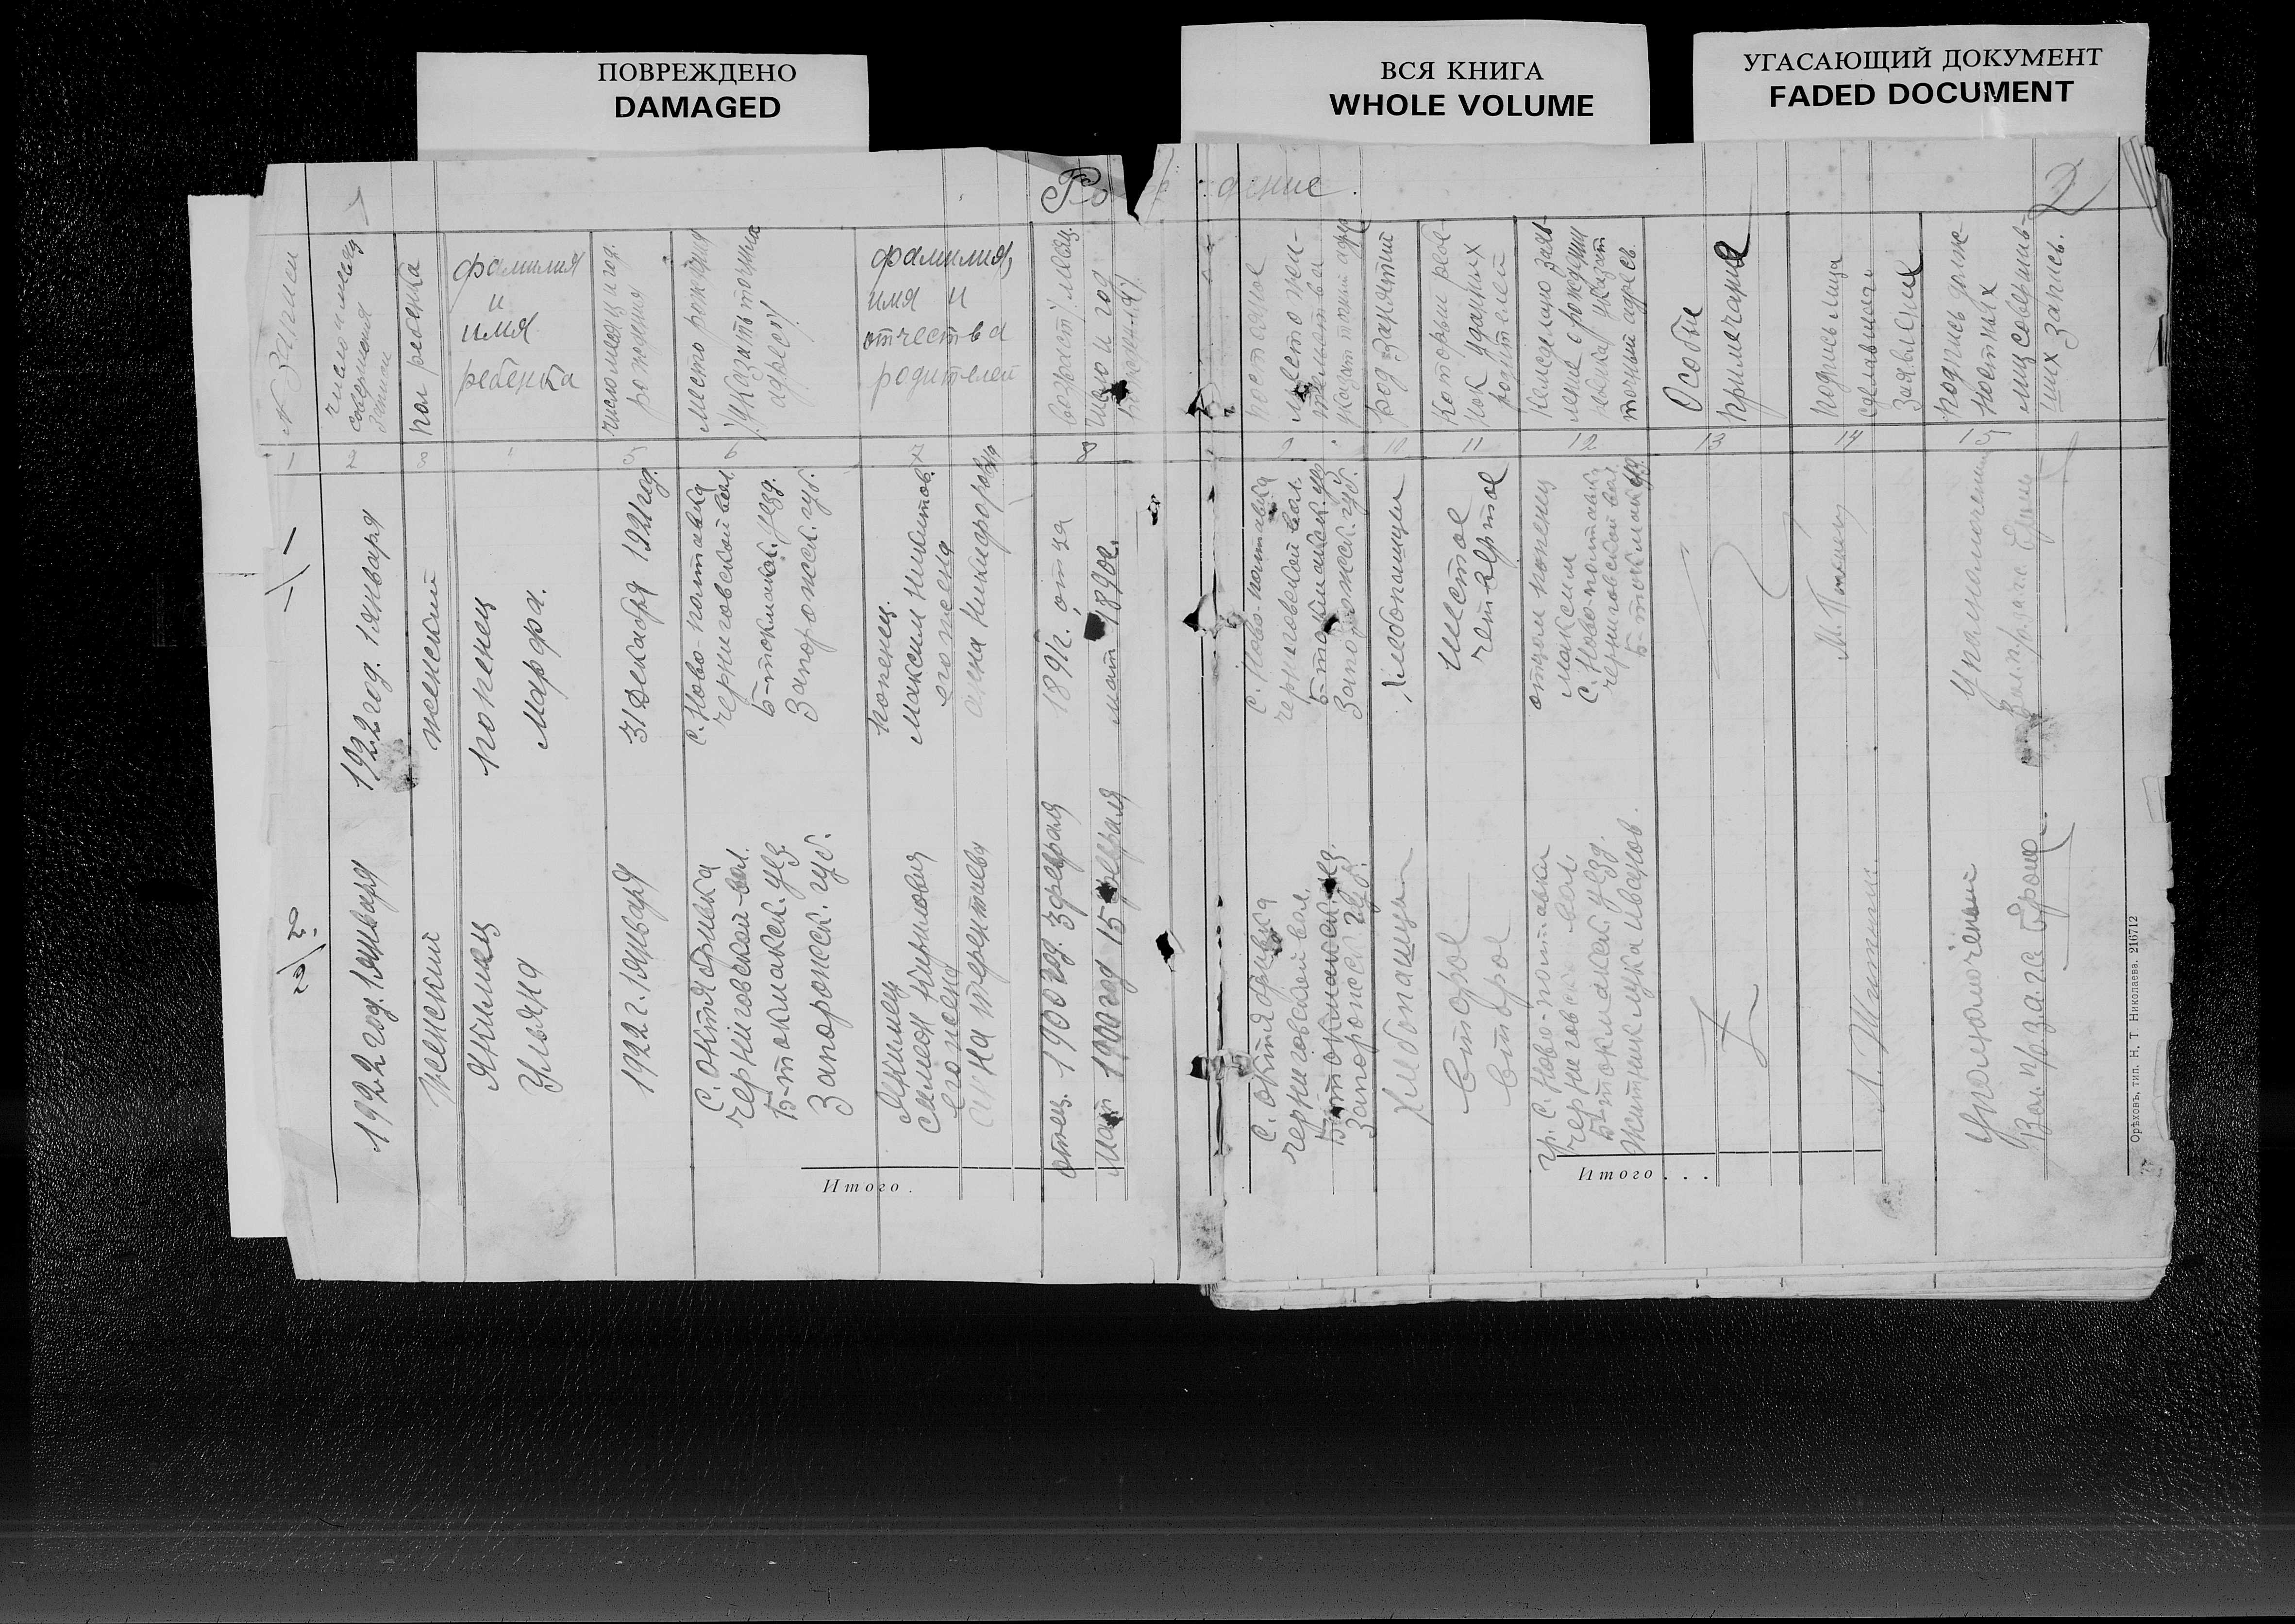 ПОВРЕЖДЕНО
DAMAGED
ВСЯ КНИГА
WHOLE VOLUME
УГАСАЮЩИЙ ДОКУМЕНТ
FADED DOCUMENT
2
Ро дение.
N Записи
число и месяц
совершения
записи
пол ребенка
фамилия
и
имя
ребенка
число месяц и год
рождения
место рождения
/указать точный
адрес/
фамилия,
имя и
отчества
родителей
возраст/месяц.
число и год
рождения/
постояное
место жи-
тельства
род занятий
Который реб-
нок у данных
родителей
Кем сделано заяв-
ление о рождении
точный адресъ
Особые
примечания
подпись лица
сделавшего
заявление
подпись долж-
ностных
лиц совершив-
ших запись.
1
2
3
5
6
7
8
9
10
11
12
13
14
15
1
1922 год. 1 января
женский
Копенец
Марфа.
31 декабря 1921 год.
с. Ново-полтавка
черниговской вол.
Б-токмакск. уезд.
Запорожск. губ.
Копенец
Максим Никитов.
его жена
анна Никифоровна
1891 г. отца
мат 1890 г.
с. Ново-полтавка
черниговской вол.
Б-токмакск. уез
Запорожск. губ.
хлебопашец
шестое
четвертое
отцом Копенец
Максим
с. Ново-полтавки
черниговской вол.
Б-токмакск уз
Уполномоченный
Зав. п/о загс
2
1922 год. 1 января
женский
Якимец
Ульяна
1922 г. 1 января
с. октябривка
черниговской вол.
Б-токмакск. уез.
Запорожск. губ.
Якимец
Семен Кирилович
его жена
анна терентиева
отец. 1900 год. 3 февраля
мат 1900 год 15 февраля
с. октябривка
черниговской вол.
Б-токмакск. уезд.
Запорожск губ.
Хлебопашец
второе
второе
гр. с. Ново-полтавки
черниговск вол
Б-токмакск. уезд.
Житник Лука иванов.
Л. Житник
Уполномоченый
Зав. п/о загс
Итого.
Итого...
Орѣховъ, тип. Н. Т. Николаева. 216712